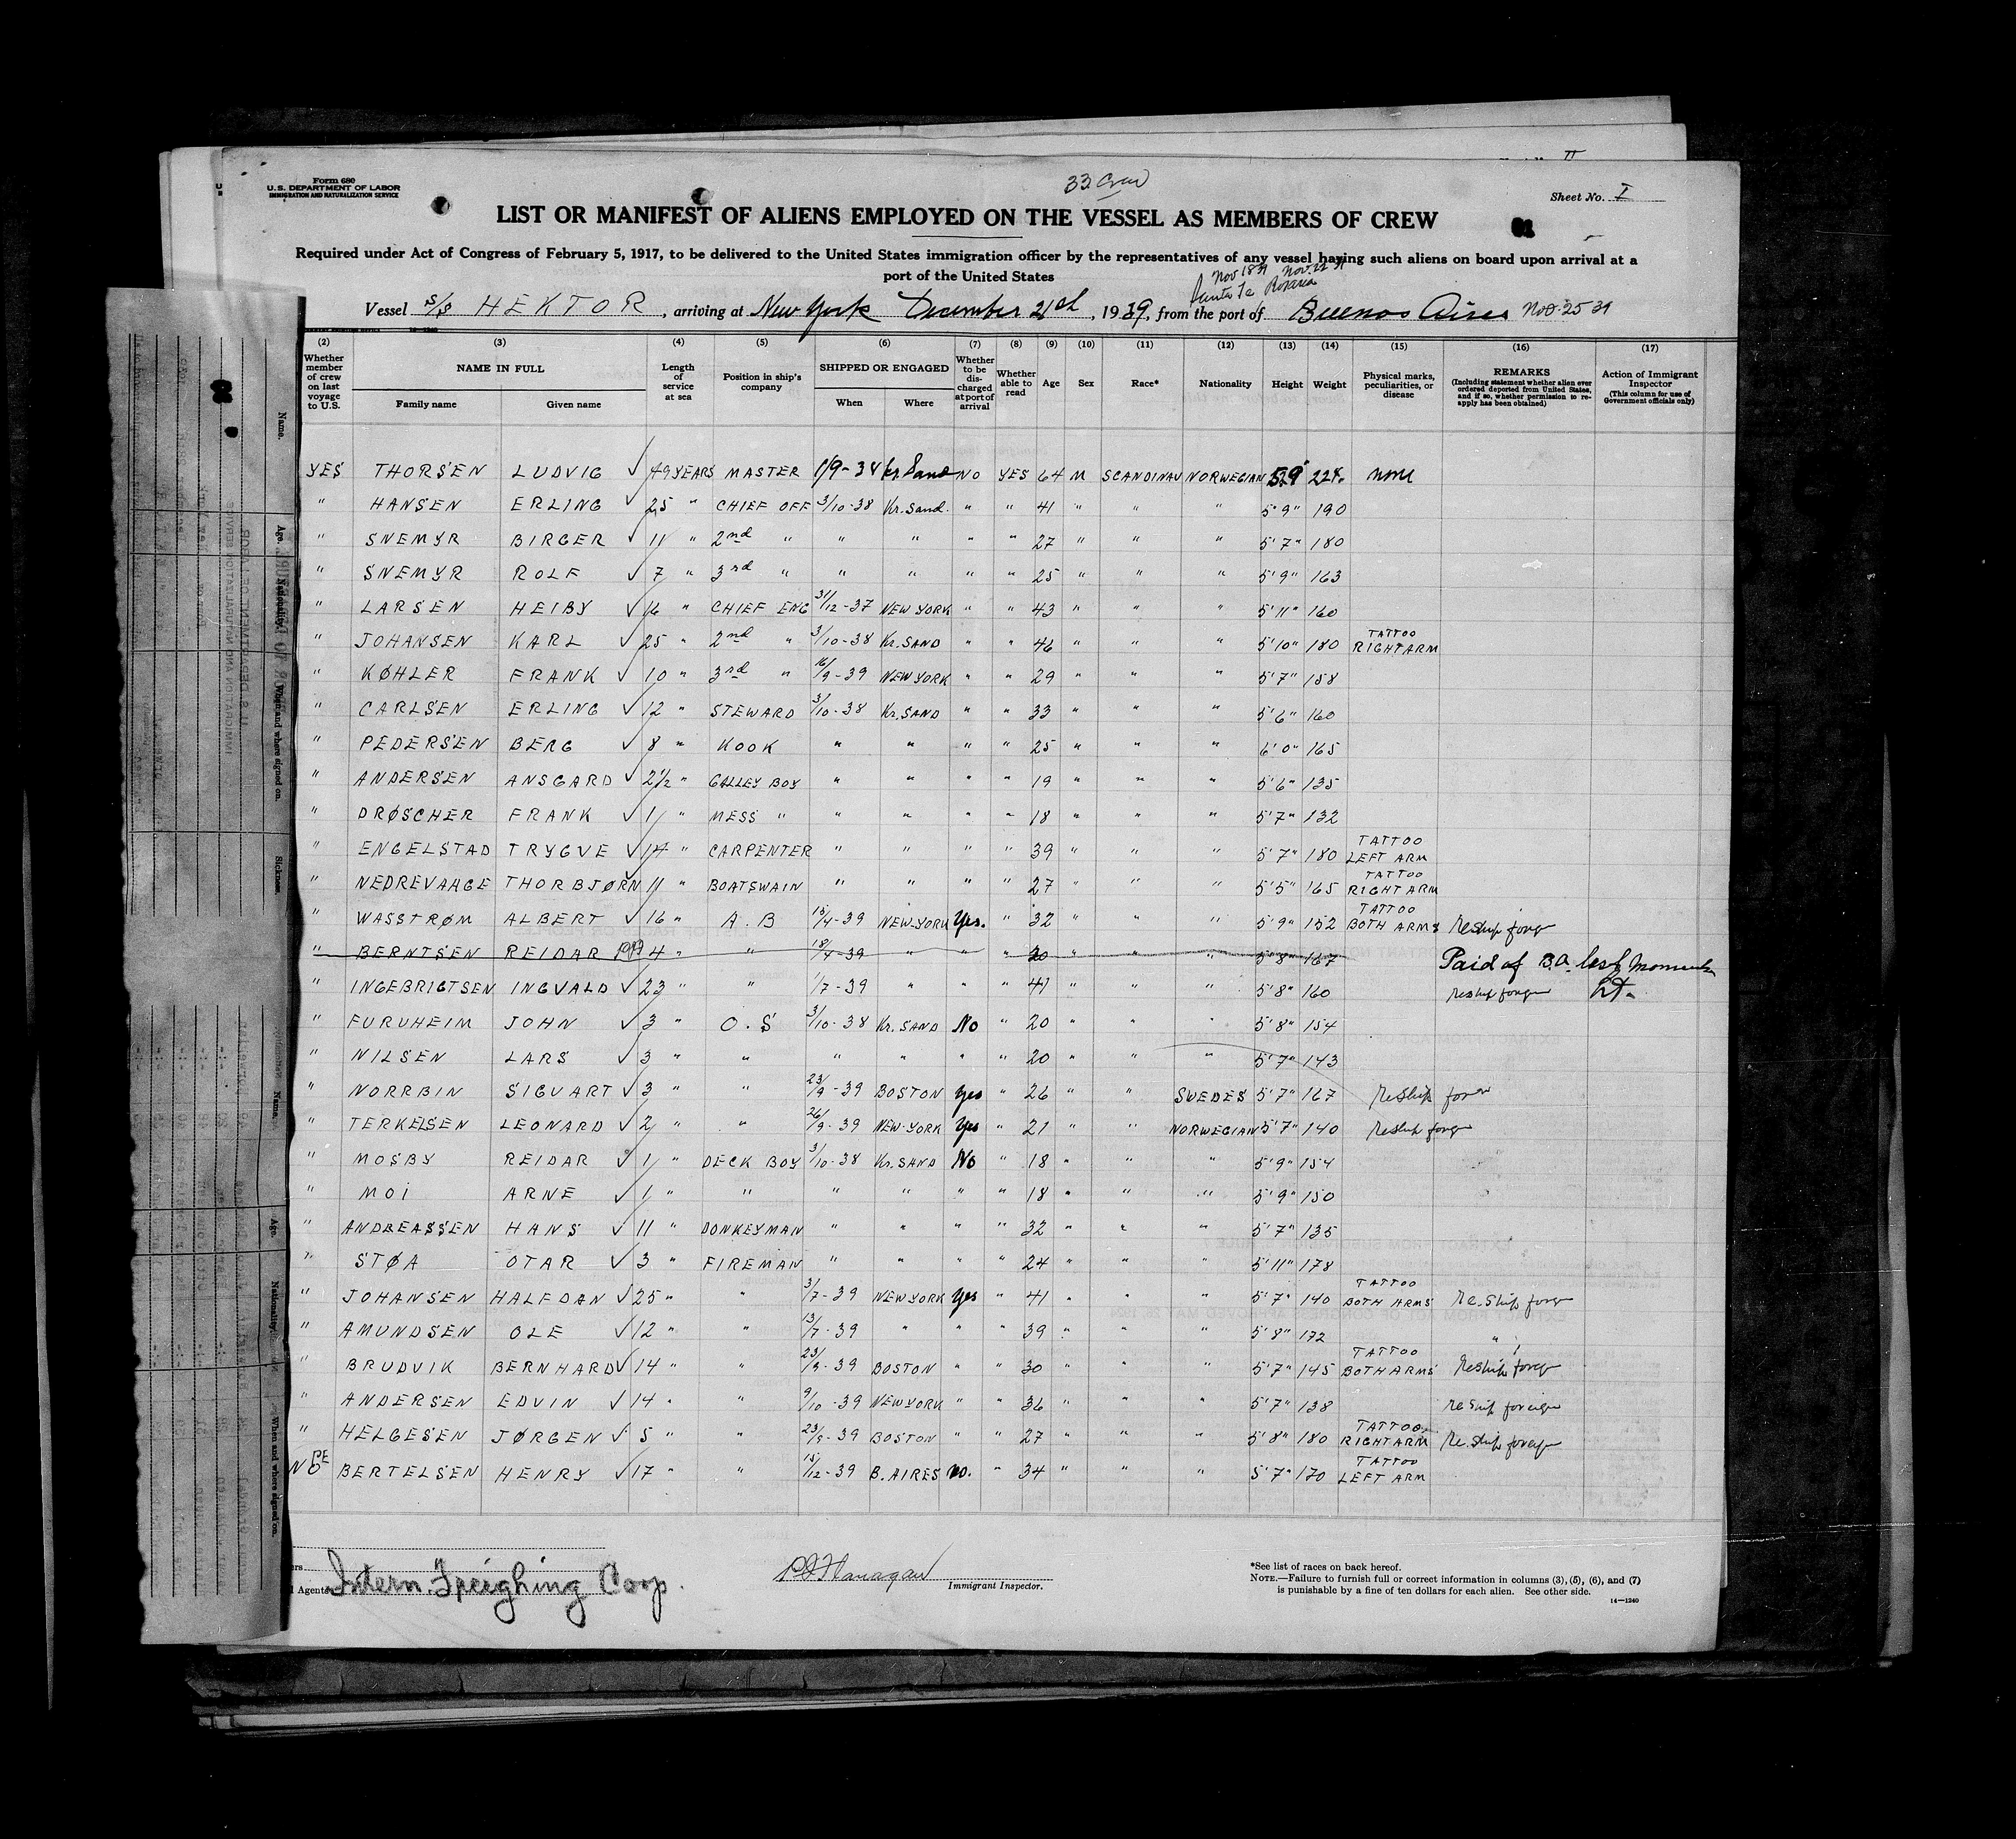 33 Crew
Form 680
U.S. DEPARTMENT OF LABOR
IMMIGRATION AND NATURALIZATION SERVICE
Sheet No. I
LIST OR MANIFEST OF ALIENS EMPLOYED ON THE VESSEL AS MEMBERS OF CREW
Required under Act of Congress of February 5, 1917, to be delivered to the United States immigration officer by the representatives of any vessel having such aliens on board upon arrival at a
port of the United States
Nov 18 39 Nov. 22 39
Santa Fe Rosario
Vessel S/S HEKTOR, arriving at New York December 21th, 1939, from the port of Buenos Aires Nov. 25 39
(2) (3) (4) (5) (6) (7) (8) (9) (10) (11) (12) (13) (14) (15) (16) (17)
Whether member of crew on last voyage to U.S. NAME IN FULL Family name Given name Length of service at sea Position in ship's company SHIPPED OR ENGAGED When Where Whether to be discharged at port of arrival Whether able to read Age Sex Race* Nationality Height Weight Physical marks, peculiarities, or disease REMARKS (Including statement whether alien ever ordered deported from United States, and if so, whether permission to re-apply has been obtained) Action of Immigrant Inspector (This column for use of Government officials only)
YES THORSEN LUDVIG √ 49 YEARS MASTER 1/9-34 Kr Sand NO YES 64 M SCANDINAV NORWEGIAN 5'9" 224 none
" HANSEN ERLING √ 25 " CHIEF OFF 3/10-38 Kr. Sand. " " 41 " " " 5'9" 190
" SNEMYR BIRGER √ 11 " 2nd " " " " " 27 " " " 5'7" 180
" SNEMYR ROLF √ 7 " 3rd " " " " " 25 " " " 5'9" 163
" LARSEN HEIBY √ 16 " CHIEF ENG 31/12-37 NEW YORK " " 43 " " " 5'11" 160
" JOHANSEN KARL √ 25 " 2nd " 3/10-38 Kr. SAND " " 46 " " " 5'10" 180 TATTOO RIGHT ARM
" KØHLER FRANK √ 10 " 3rd " 16/9-39 NEW YORK " " 29 " " " 5'7" 158
" CARLSEN ERLING √ 12 " STEWARD 3/10-38 Kr. SAND " " 33 " " " 5'6" 160
" PEDERSEN BERG √ 8 " KOOK " " " " 25 " " " 6'0" 165
" ANDERSEN ANSGARD √ 2 1/2 " GALLEY BOY " " " " 19 " " " 5'6" 135
" DRØSCHER FRANK √ 1 " MESS " " " " " 18 " " " 5'7" 132
" ENGELSTAD TRYGVE √ 14 " CARPENTER " " " " 39 " " " 5'7" 180 TATTOO LEFT ARM
" NEDREVAAGE THORBJØRN 11 " BOATSWAIN " " " " 27 " " " 5'5" 165 TATTOO RIGHT ARM
" WASSTRØM ALBERT √ 16 " A.B 15/4-39 NEW-YORK Yes. " 32 " " " 5'9" 152 TATTOO BOTH ARMS Reship forgn
" BERNTSEN REIDAR 4 " " 18/4-39 " " " 20 " " " 5'8" 167 Paid of B.A. last moment
" INGEBRIGTSEN INGVALD √ 23 " " 1/7-39 " " " 41 " " " 5'8" 160 Reship forgn
" FURUHEIM JOHN √ 3 " O.S 3/10-38 Kr. SAND No " 20 " " " 5'8" 154
" NILSEN LARS √ 3 " " " " " " 20 " " " 5'7" 143
" NORRBIN SIGVART √ 3 " " 23/9-39 BOSTON Yes " 26 " " SWEDES 5'7" 167 Reship forgn
" TERKELSEN LEONARD √ 2 " " 26/9-39 NEW-YORK Yes " 21 " " NORWEGIAN 5'7" 140 Reship forgn
" MOSBY REIDAR √ 1 " DECK BOY 3/10-38 Kr. SAND No " 18 " " " 5'9" 154
" MOI ARNE √ 1 " " " " " " 18 " " " 5'9" 150
" ANDREASSEN HANS √ 11 " DONKEYMAN " " " " 32 " " " 5'7" 135
" STØA OTAR √ 3 " FIREMAN " " " " 24 " " " 5'11" 178
" JOHANSEN HALFDAN √ 25 " " 3/7-39 NEW YORK Yes " 41 " " " 5'7" 140 TATTOO BOTH ARMS Re. Ship forgn
" AMUNDSEN OLE √ 12 " " 13/7-39 " " " 39 " " " 5'8" 172 "
" BRUDVIK BERNHARD √ 14 " " 23/9-39 BOSTON " " 30 " " " 5'7" 145 TATTOO BOTH ARMS Reship forgn
" ANDERSEN EDVIN √ 14 " " 9/10-39 NEW YORK " " 36 " " " 5'7" 138 Re Ship foreign
" HELGESEN JØRGEN √ 5 " " 23/9-39 BOSTON " " 27 " " " 5'8" 180 TATTOO RIGHT ARM Re. ship foreign
NO PE BERTELSEN HENRY √ 17 " " 15/12-39 B. AIRES No. " 34 " " " 5'7" 170 TATTOO LEFT ARM
Agents Intern. Freighing Corp.
Immigrant Inspector.
*See list of races on back hereof.
NOTE.—Failure to furnish full or correct information in columns (3), (5), (6), and (7)
is punishable by a fine of ten dollars for each alien. See other side.
14—1240